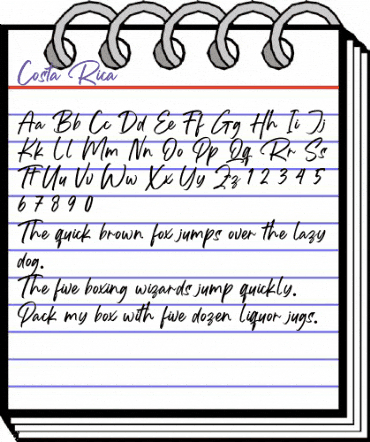 Costa Rica
Aa Bb Cc Dd Ee Ff Gg Hh Ii Jj
Kk Ll Mm Nn Oo Pp Qq Rr Ss
Tt Uu Vv Ww Xx Yy Zz 1 2 3 4 5
6 7 8 9 0
The quick brown fox jumps over the lazy
dog.
The five boxing wizards jump quickly.
Pack my box with five dozen liquor jugs.